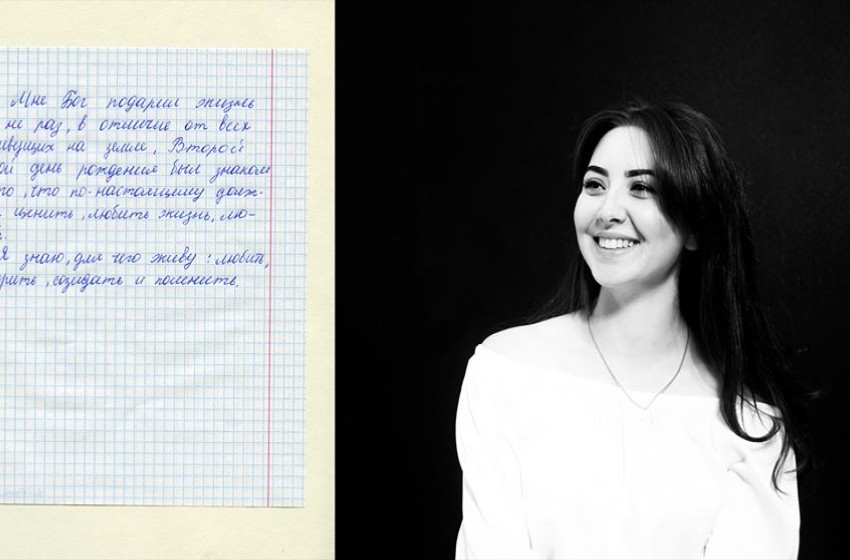 Мне Бог подарил жизнь
не раз, в отличие от всех
ивущих на земле. Второй
ой день рождения был знаком
го, что по-настоящему долж-
ценить, любить жизнь, лю-
Я знаю, для чего живу: любить,
рить, созидать и помнить.